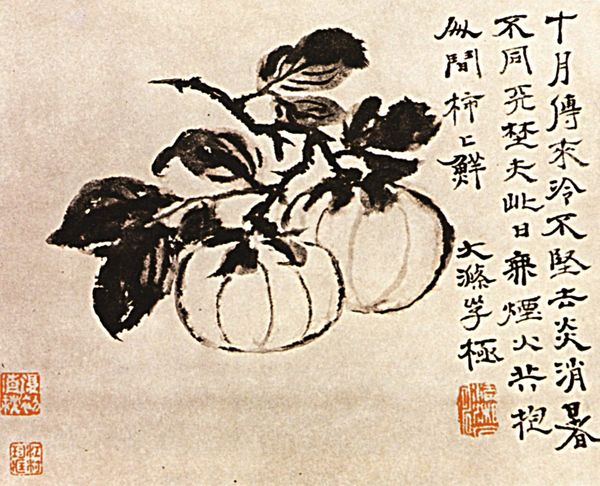 十月傳來冷不堅去炎消暑
不同埜夫此日無煙火共抱
似柿上鮮
大滌子極